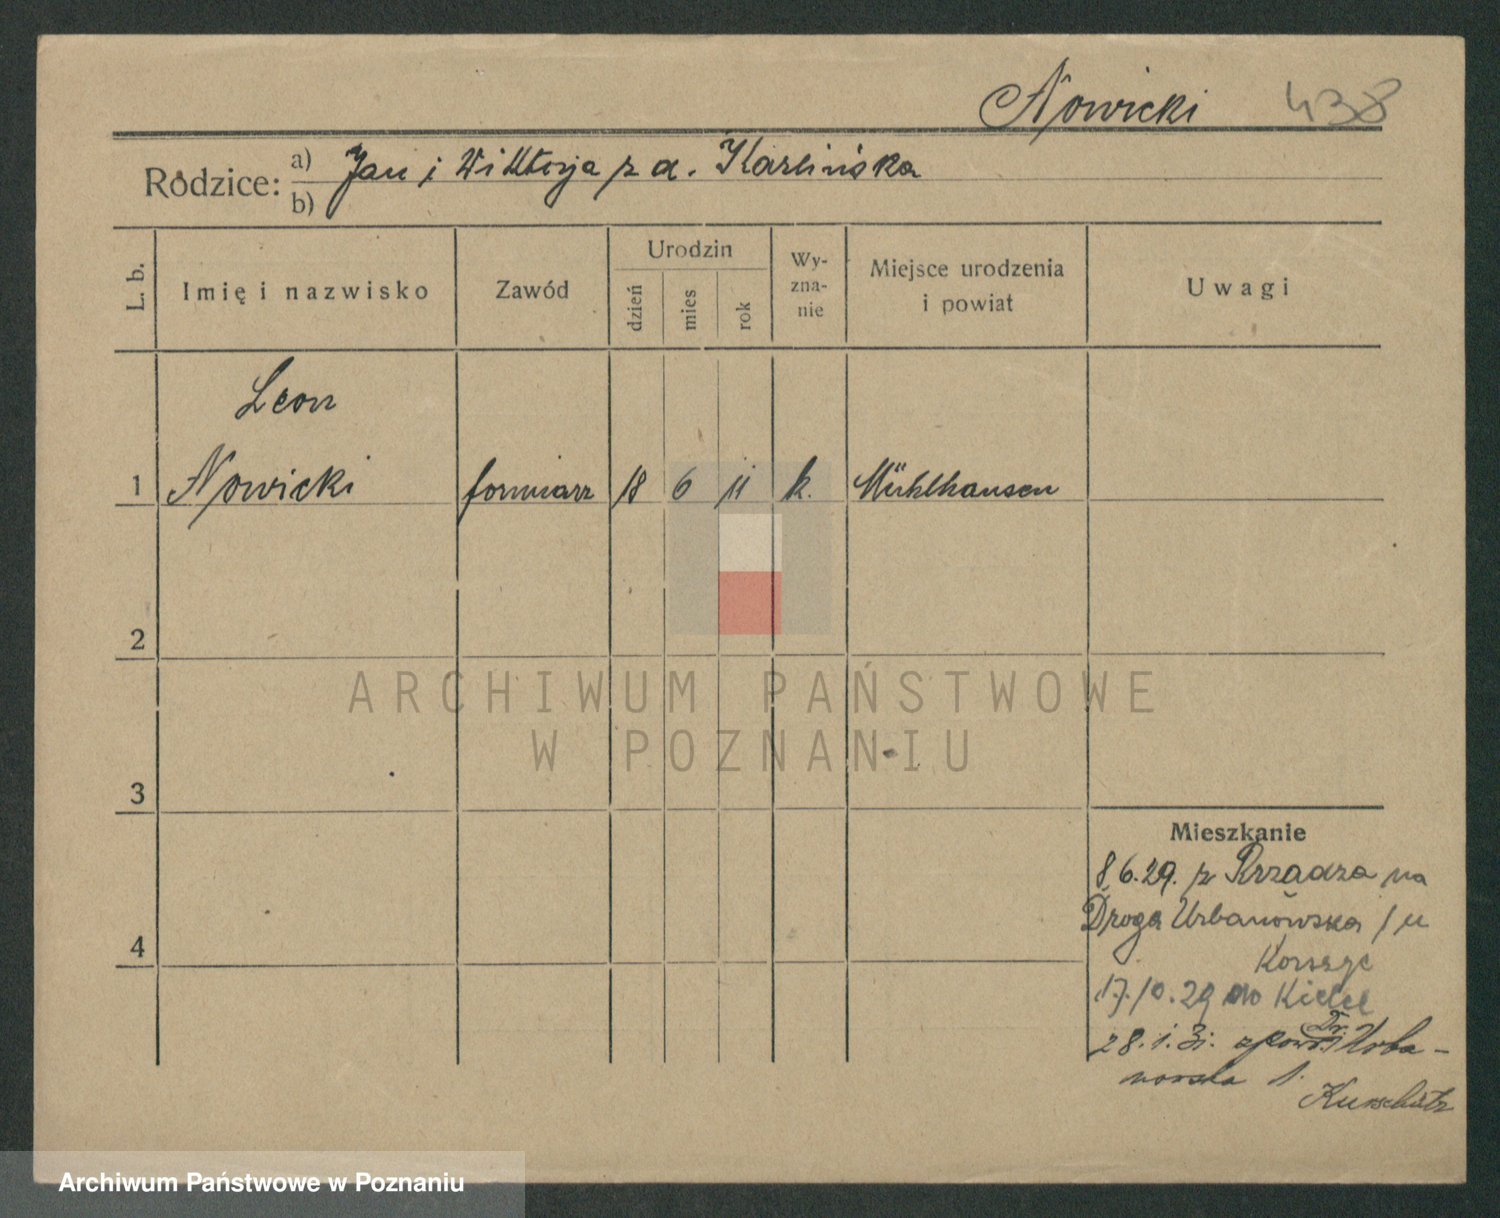 Nowicki 438
Rodzice: a) Jan i Wiktorja z d. Karlińska
b)
L. b.
Imię i nazwisko
Zawód
Urodzin
dzień
mies
rok
Wy-
zna-
nie
Miejsce urodzenia
i powiat
Uwagi
Leon
1 Nowicki formiarz 18 6 11 k. Mühlhausen
2
3
4
ARCHIWUM PAŃSTWOWE
W POZNANIU
Mieszkanie
8 6.29. z na
Droga Urbanowska 1 u
17.10.29 do Kielce
28.1.31. Dr. Urba-
nowska 1.
Archiwum Państwowe w Poznaniu